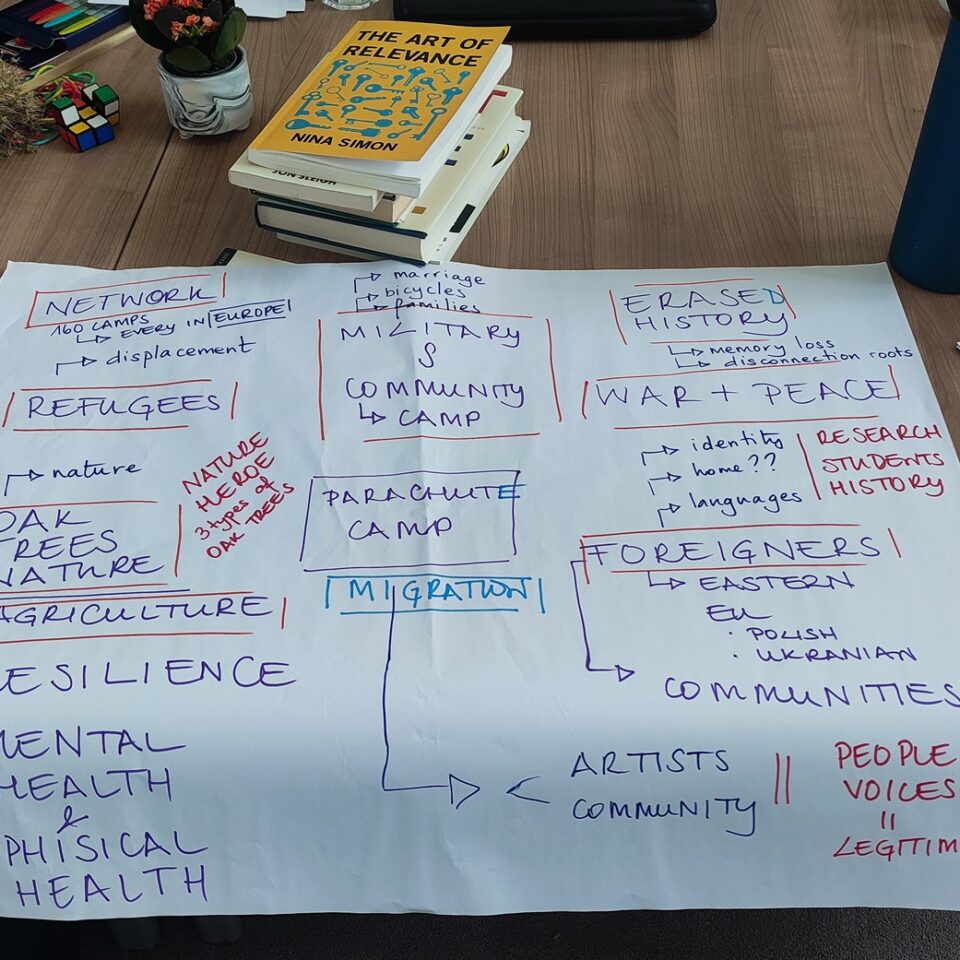 THE ART OF
RELEVANCE
NINA SIMON
JON SLEIGH
NETWORK
160 CAMPS
EVERY IN EUROPE
displacement
REFUGEES
nature
OAK
TREES
NATURE
NATURE
HEROE
3 types of
OAK TREES
AGRICULTURE
RESILIENCE
MENTAL
HEALTH
&
PHISICAL
HEALTH
marriage
bicycles
families
MILITARY
&
COMMUNITY
CAMP
PARACHUTE
CAMP
MIGRATION
ERASED
HISTORY
memory loss
disconnection roots
WAR + PEACE
identity
home??
languages
RESEARCH
STUDENTS
HISTORY
FOREIGNERS
EASTERN
EU
• POLISH
• UKRANIAN
COMMUNITIES
ARTISTS
COMMUNITY
PEOPLE
VOICES
=
LEGITIM